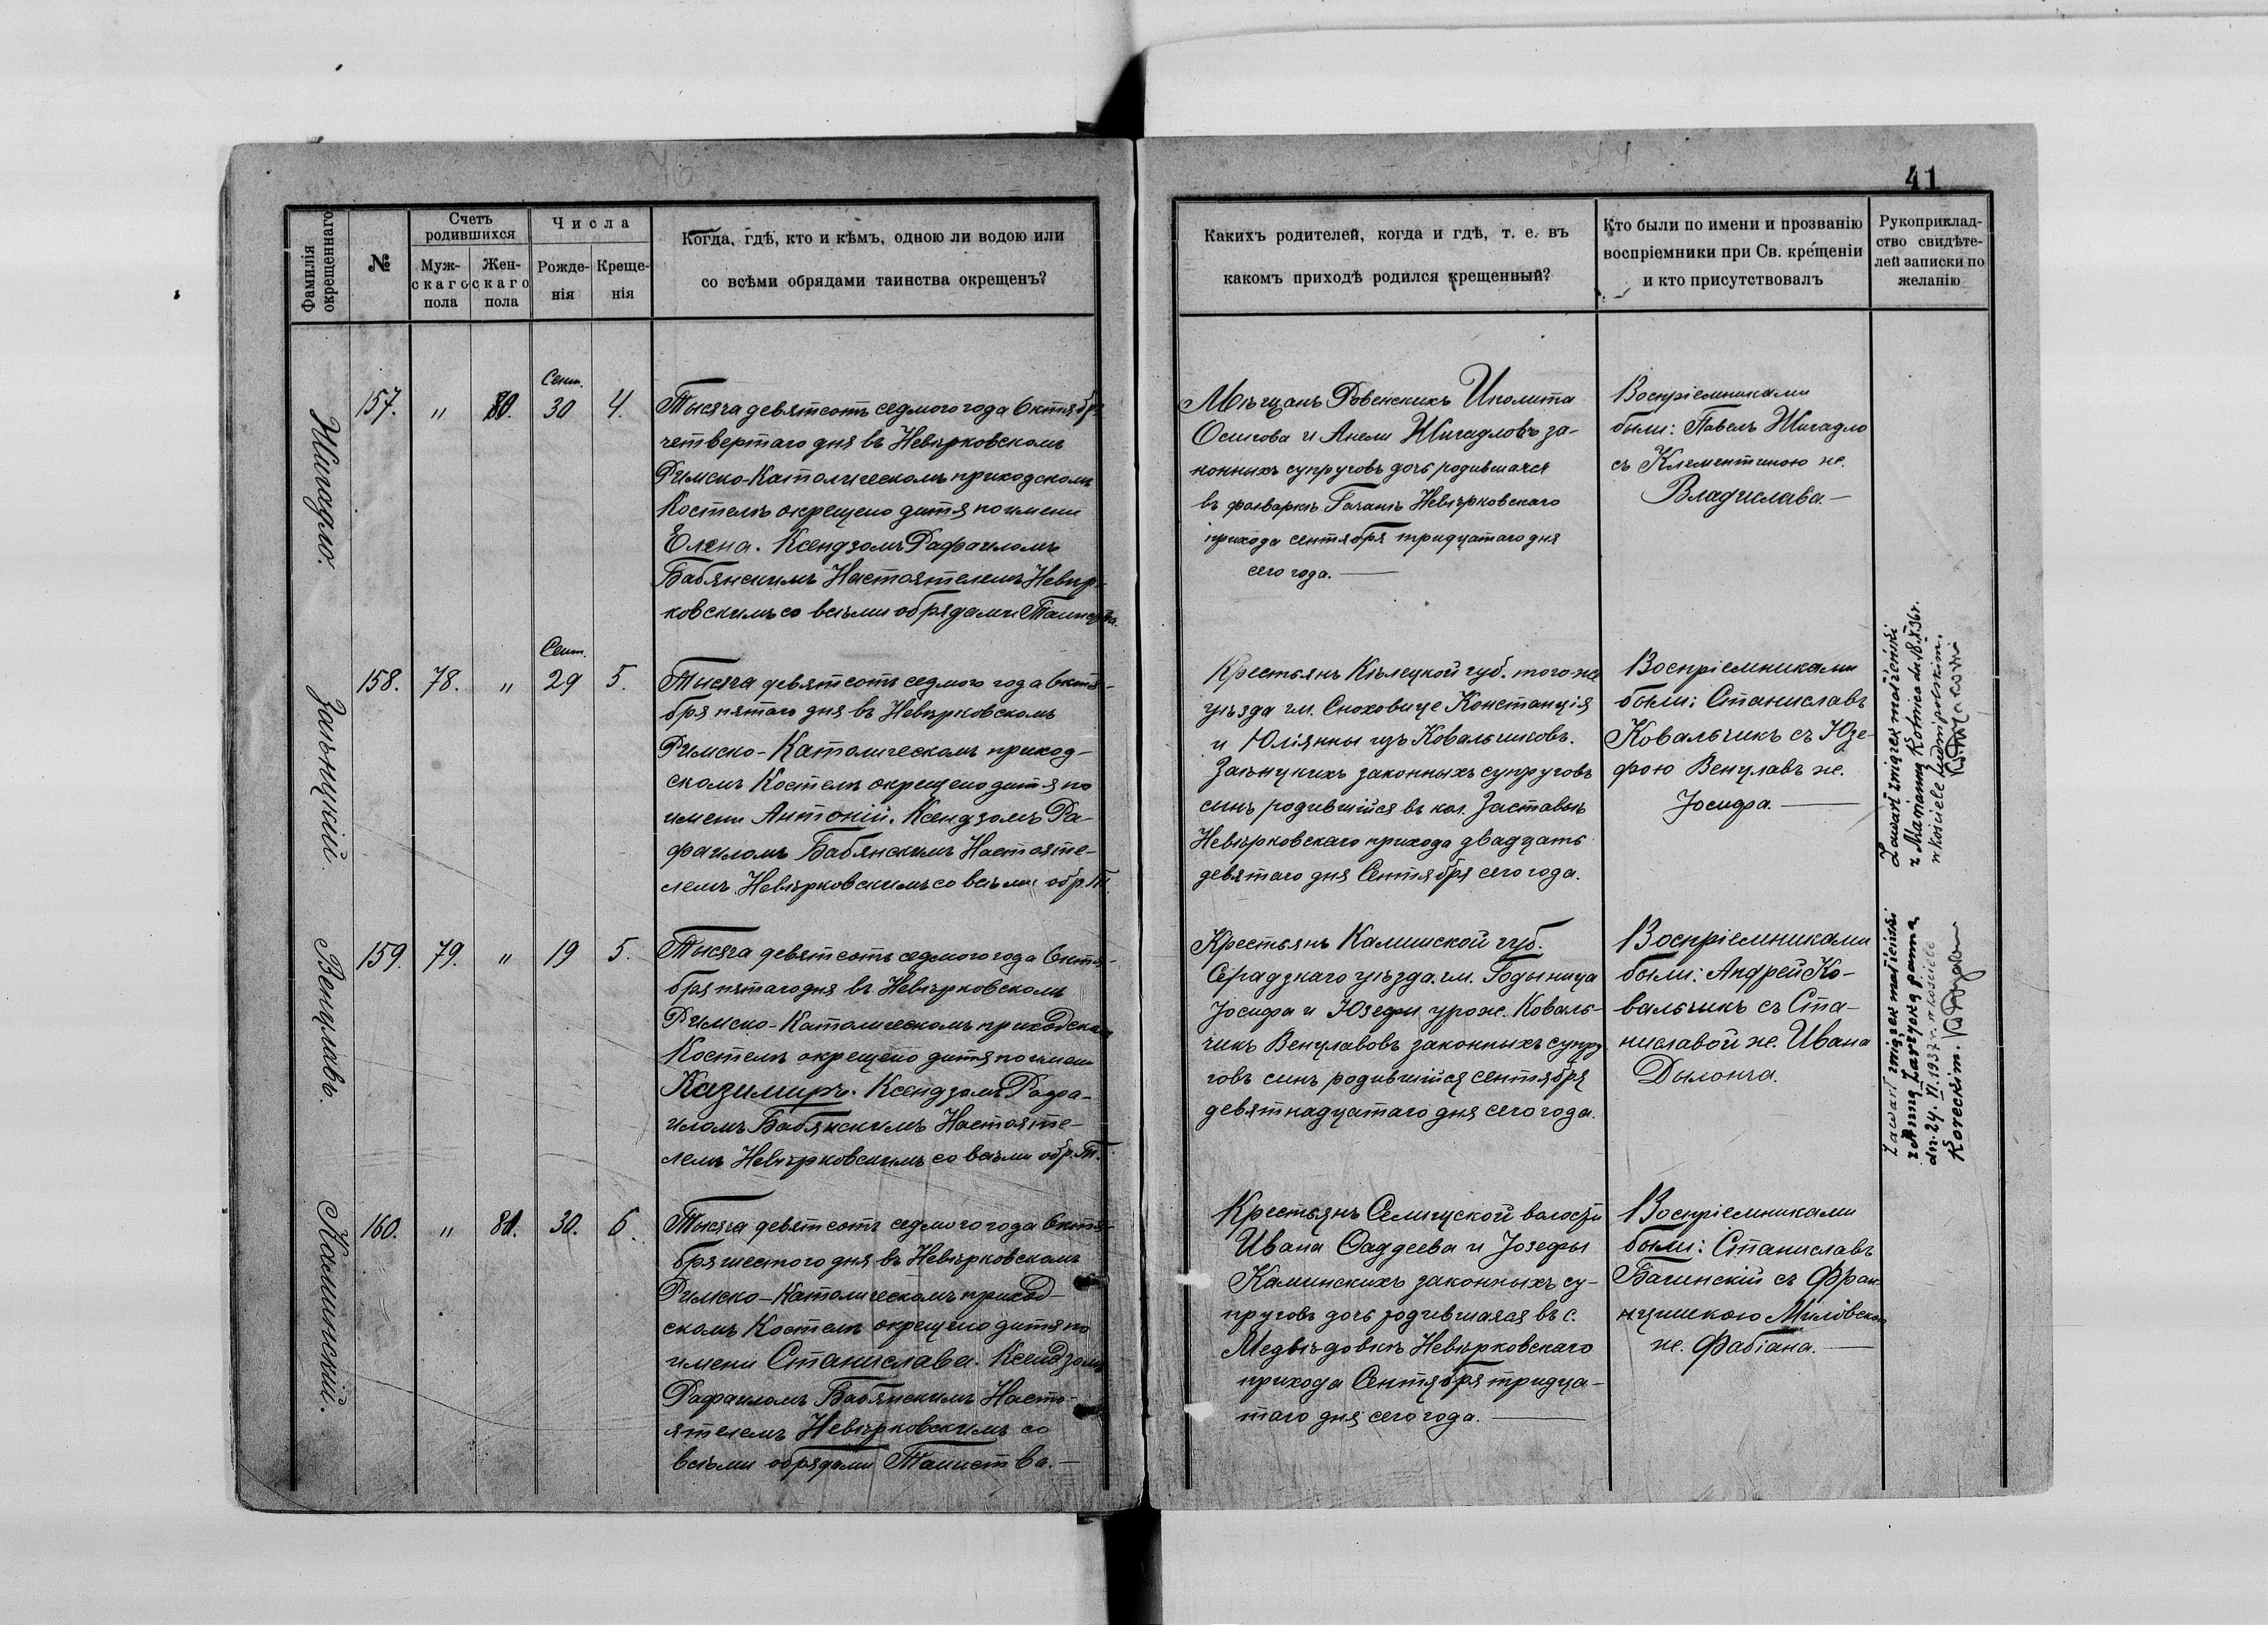 41
Фамилія
окрещеннаго
№
Счетъ
родившихся
Муж-
скаго
пола
Жен-
скаго
пола
Числа
Рожде-
нія
Креще-
нія
Когда, гдѣ, кто и кѣмъ, одною ли водою или
со всѣми обрядами таинства окрещенъ?
Какихъ родителей, когда и гдѣ, т. е. въ
какомъ приходѣ родился крещенный?
Кто были по имени и прозванію
воспріемники при Св. крещеніи
и кто присутствовалъ
Рукоприклад-
ство свидѣте-
лей записки по
желанію
Шигадло.
157.
"
80.
Сент.
30
4.
Тысяча девятсотъ седмого года Октября
четвертаго дня въ Невѣрковскомъ
Римско-Католическомъ приходскомъ
Костелѣ окрещено дитя по имени
Елена. Ксендзомъ Рафаиломъ
Бабянскимъ Настоятелемъ Невѣр-
ковскимъ со всѣми обрядами Таинства.
Мѣщанъ Ровенскихъ Иполита
Осипова и Анели Шигадловъ за-
конныхъ супруговъ дочь родившаяся
въ фолваркѣ Невѣрковскаго
прихода сентября тридцатаго дня
сего года. —
Воспріемниками
были: Павелъ Шигадло
съ Клементиною ж.
Владислава —
Заѣнцкій.
158.
78.
"
Сент.
29
5.
Тысяча девятсотъ седмого года Октя-
бря пятаго дня въ Невѣрковскомъ
Римско-Католическомъ приход-
скомъ Костелѣ окрещено дитя по
имени Антоній. Ксендзомъ Ра-
фаиломъ Бабянскимъ Настояте-
лемъ Невѣрковскимъ со всѣми обр. Т.
Крестьянъ Кѣлецкой губ. того-же
уѣзда гм. Сноховице Констанція
и Юліянны изъ Ковальчиковъ.
Заѣнцкихъ законныхъ супруговъ
синъ родившійся въ кол. Заставьѣ
Невѣрковскаго прихода двадцать
девятаго дня Сентября сего года.
Воспріемниками
были: Станиславъ
Ковальчикъ съ Юзе-
фою Венцлавъ ж.
Іосифа. —
Zawarł związek małżeński
z Marianną Kotnica dn. 18.X.36 r.
w kościele Ludwipolskim.
Венцлавъ.
159.
79.
"
19
5.
Тысяча девятсотъ седмого года Октя-
бря пятаго дня въ Невѣрковскомъ
Римско-Католическомъ приходскомъ
Костелѣ окрещено дитя по имени
Казимиръ. Ксендзомъ Рафа-
иломъ Бабянскимъ Настояте-
лемъ Невѣрковскимъ со всѣми обр. Т.
Крестьянъ Калишской губ.
Серадзкаго уѣзда. гм. Годыница
Іосифа и Юзефы урож. Коваль-
чикъ Венцлавовъ законныхъ супру-
говъ синъ родившійся сентября
девятнадцатаго дня сего года.
Воспріемниками
были: Андрей Ко-
вальчикъ съ Ста-
ниславой ж. Ивана
Дылонга.
Zawarł związek małżeński
z Anną panna
dn. 24. VI. 1937 r. w kościele
Koreckim.
Каминскій.
160.
"
81.
30.
6.
Тысяча девятсотъ седмого года Октя-
бря шестого дня въ Невѣрковскомъ
Римско-Католическомъ приход-
скомъ Костелѣ окрещено дитя по
имени Станислава. Ксендзомъ
Рафаиломъ Бабянскимъ Насто-
ятелемъ Невѣрковскимъ со
всѣми обрядами Таинства. —
Крестьянъ Селищской волости
Ивана Фаддеева и Јозефы
Каминскихъ законныхъ су-
пруговъ дочь родившаяся въ с.
Медвѣдовкѣ Невѣрковскаго
прихода Сентября тридца-
таго дня сего года. —
Воспріемниками
были: Станиславъ
Багинскій съ Фран-
цишкою Миловской
ж. Фабіана. —